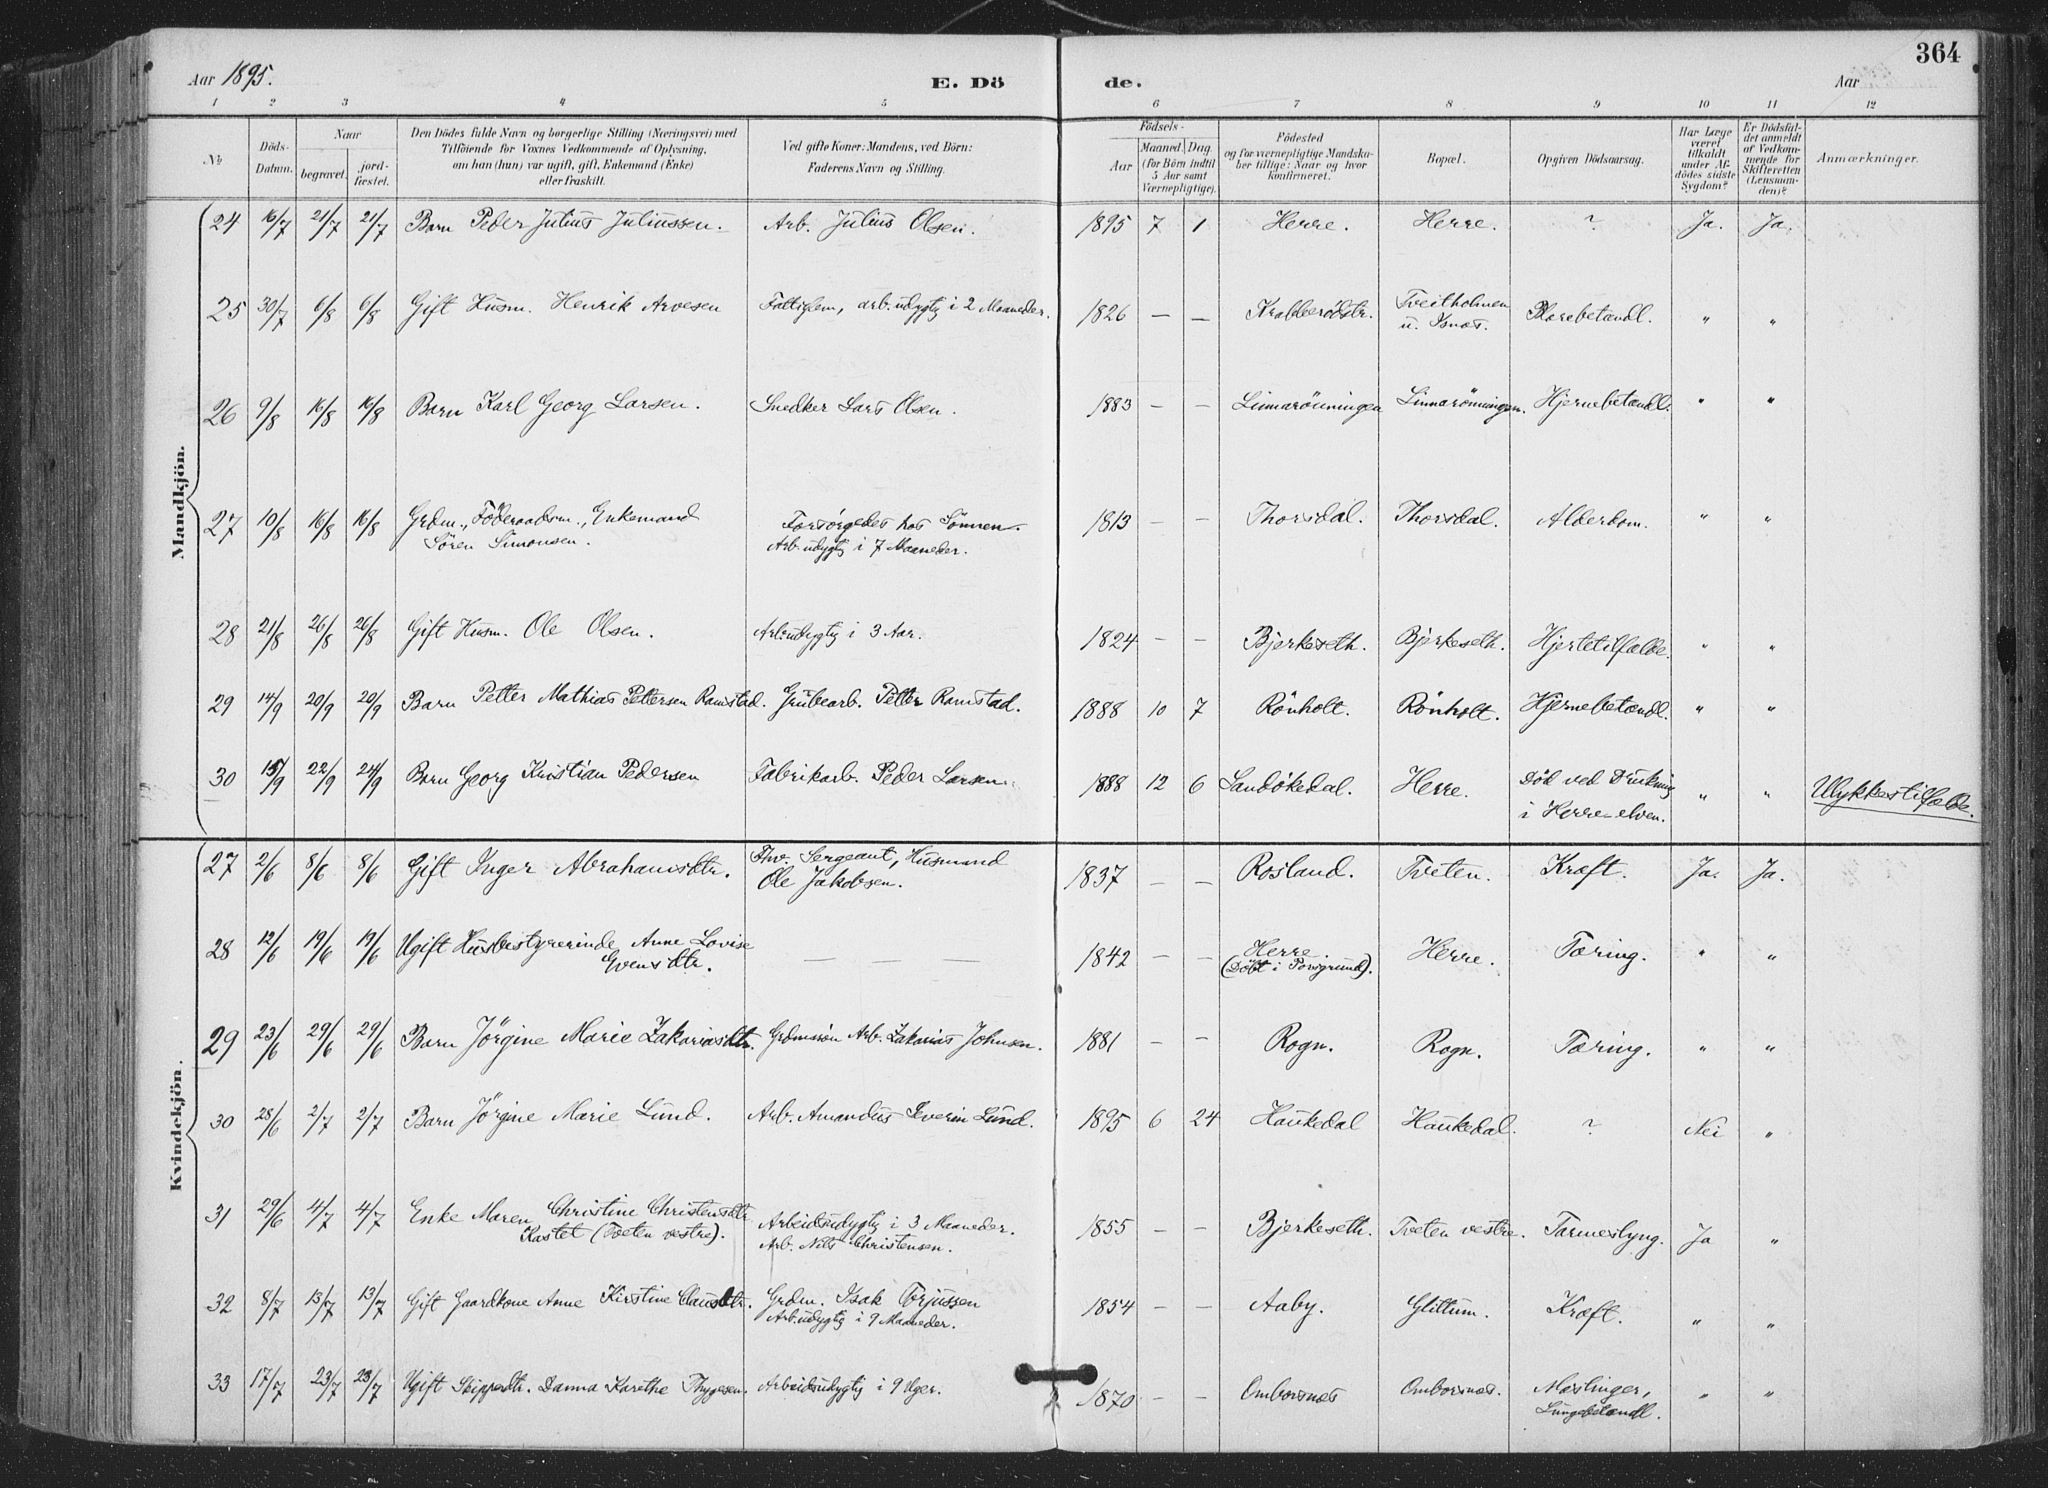 Aar 1895. E. Dö de. Aar 364
1 2 3 4 5 6 7 8 9 10 11 12
№ Döds-Datum. Naar begravet. jord-fæstet. Den Dödes fulde Navn og borgerlige Stilling (Næringsvei) med Tilföiende for Voxnes Vedkommende af Oplysning, om han (hun) var ugift, gift, Enkemand (Enke) eller fraskilt. Ved gifte Koner: Mandens, ved Börn: Faderens Navn og Stilling. Födsels- Aar Maaned. Dag. (for Börn indtil 5 Aar samt Værnepligtige). Födested og for værnepligtige Mandska-ber tillige: Naar og hvor konfirmeret. Bopæl. Opgiven Dödsaarsag. Har Læge været tilkaldt under Af-dödes sidste Sygdom? Er Dödsfal-det anmeldt af Vedkom-mende for Skifteretten (Lensman-den)? Anmærkninger.
Mandkjön.
24 16/7 21/7 21/7 Barn Peder Julius Juliussen. Arb. Julius Olsen. 1895 7 1 Herre. Herre. ? Ja. Ja.
25 30/7 6/8 6/8 Gift Husm. Henrik Arvesen Fattiglem, arb.udygtig i 2 Maaneder. 1826 — — Krabberödstr. Tveitholmen u. Isnæs. Blærebetændl. " "
26 9/8 16/8 16/8 Barn Karl Georg Larsen. Snedker Lars Olsen. 1883 — — Linnarönningen Linnarönningen. Hjernebetændl. " "
27 10/8 16/8 16/8 Grdm., Föderaadsm., Enkemand Sören Simonsen. Forsörgedes hos Sönnen. Arb.udygtig i 7 Maaneder. 1813 — — Thorsdal. Thorsdal. Alderdom. " "
28 21/8 26/8 26/8 Gift Husm. Ole Olsen. Arb.udygtig i 3 Aar. 1824 — — Bjerkeseth. Bjerkeseth. Hjertetilfælde. " "
29 14/9 20/9 20/9 Barn Petter Mathias Pettersen Ramstad. Grubearb. Petter Ramstad. 1888 10 7 Rönholt. Rönholt. Hjernebetændl. " "
30 15/9 22/9 24/9 Barn Georg Kristian Pedersen Fabrikarb. Peder Larsen. 1888 12 6 Sandökedal. Herre. Död ved Drukning i Herre-elven. " " Ulykkestilfælde.
Kvindekjön.
27 2/6 8/6 8/6 Gift Inger Abrahamsdtr. Fhv. Sergeant, Husmand Ole Jakobsen. 1837 — — Rosland. Tveten. Kræft. Ja. Ja.
28 12/6 19/6 19/6 Ugift Husbestyrerinde Anne Lovise Evensdtr. — — — 1842 — — Herre. (Döbt i Porsgrund). Herre. Tæring. " "
29 23/6 29/6 29/6 Barn Jörgine Marie Zakariasdtr. Grdmssön Arb. Zakarias Johnsen. 1881 — — Rogn. Rogn. Tæring. " "
30 28/6 2/7 2/7 Barn Jörgine Marie Lund. Arb. Amandus Severin Lund. 1895 6 24 Haukedal Haukedal. ? Nei "
31 29/6 4/7 4/7 Enke Maren Christine Christensdtr Kastet (Tveten vestre). Arbeidsudygtig i 3 Maaneder. Arb. Nils Christensen. 1855 — — Bjerkeseth. Tveten vestre. Tarmeslyng. Ja "
32 8/7 13/7 13/7 Gift Gaardkone Anne Kirstine Clausdtr. Grdm. Isak Torjussen Arb.udygtig i 9 Maaneder. 1854 — — Aaby. Glittum. Kræft. " "
33 17/7 23/7 23/7 Ugift Skipperdtr. Danna Karethe Thygesen. Arbeidsudygtig i 9 Uger. 1870 — — Omborsnæs Omborsnæs. Mæslinger, Lungebetændl. " "